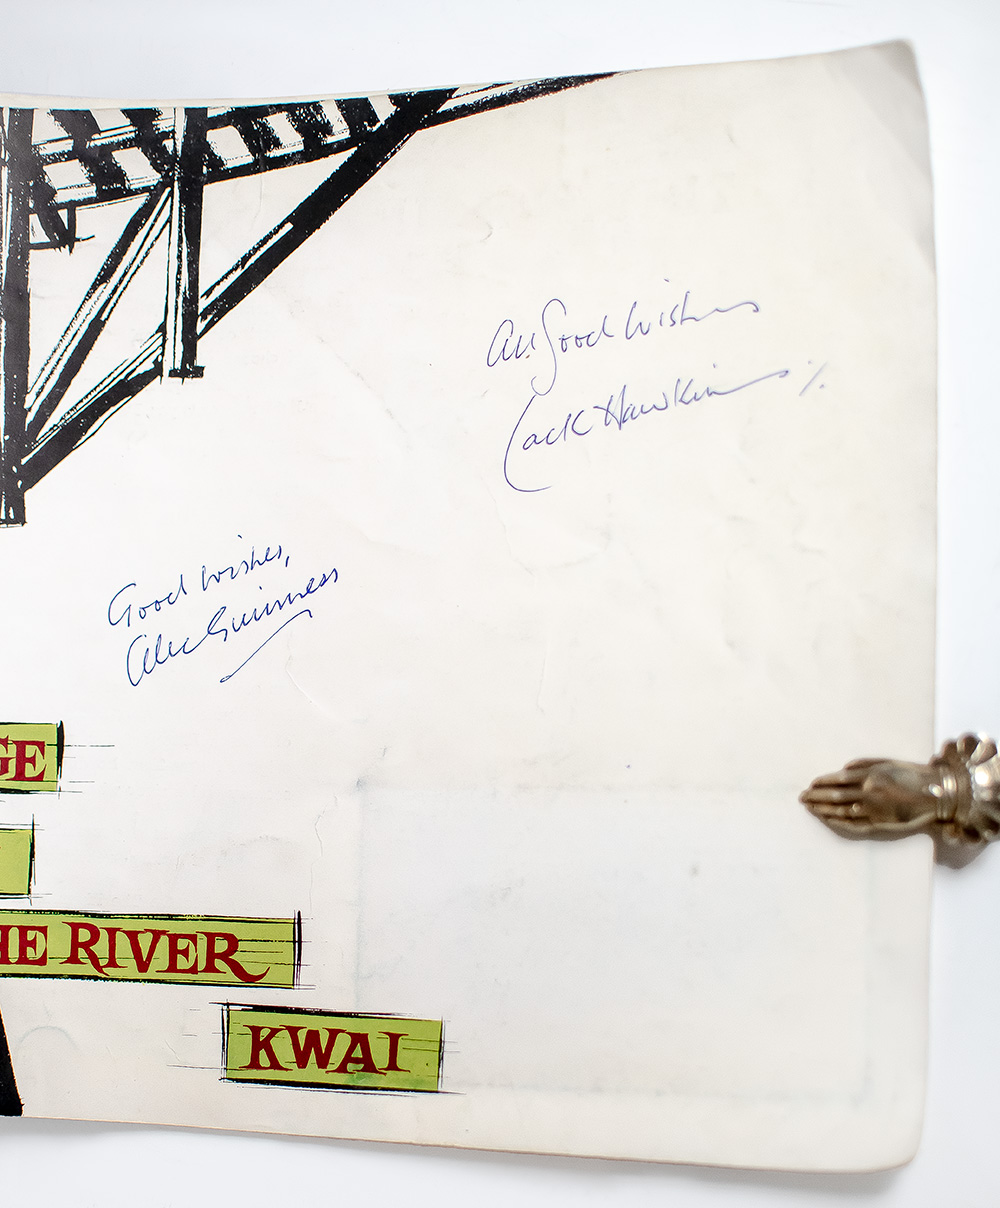 All Good Wishes
Jack Hawkins
Good wishes,
Alec Guinness
GE
HE RIVER
KWAI